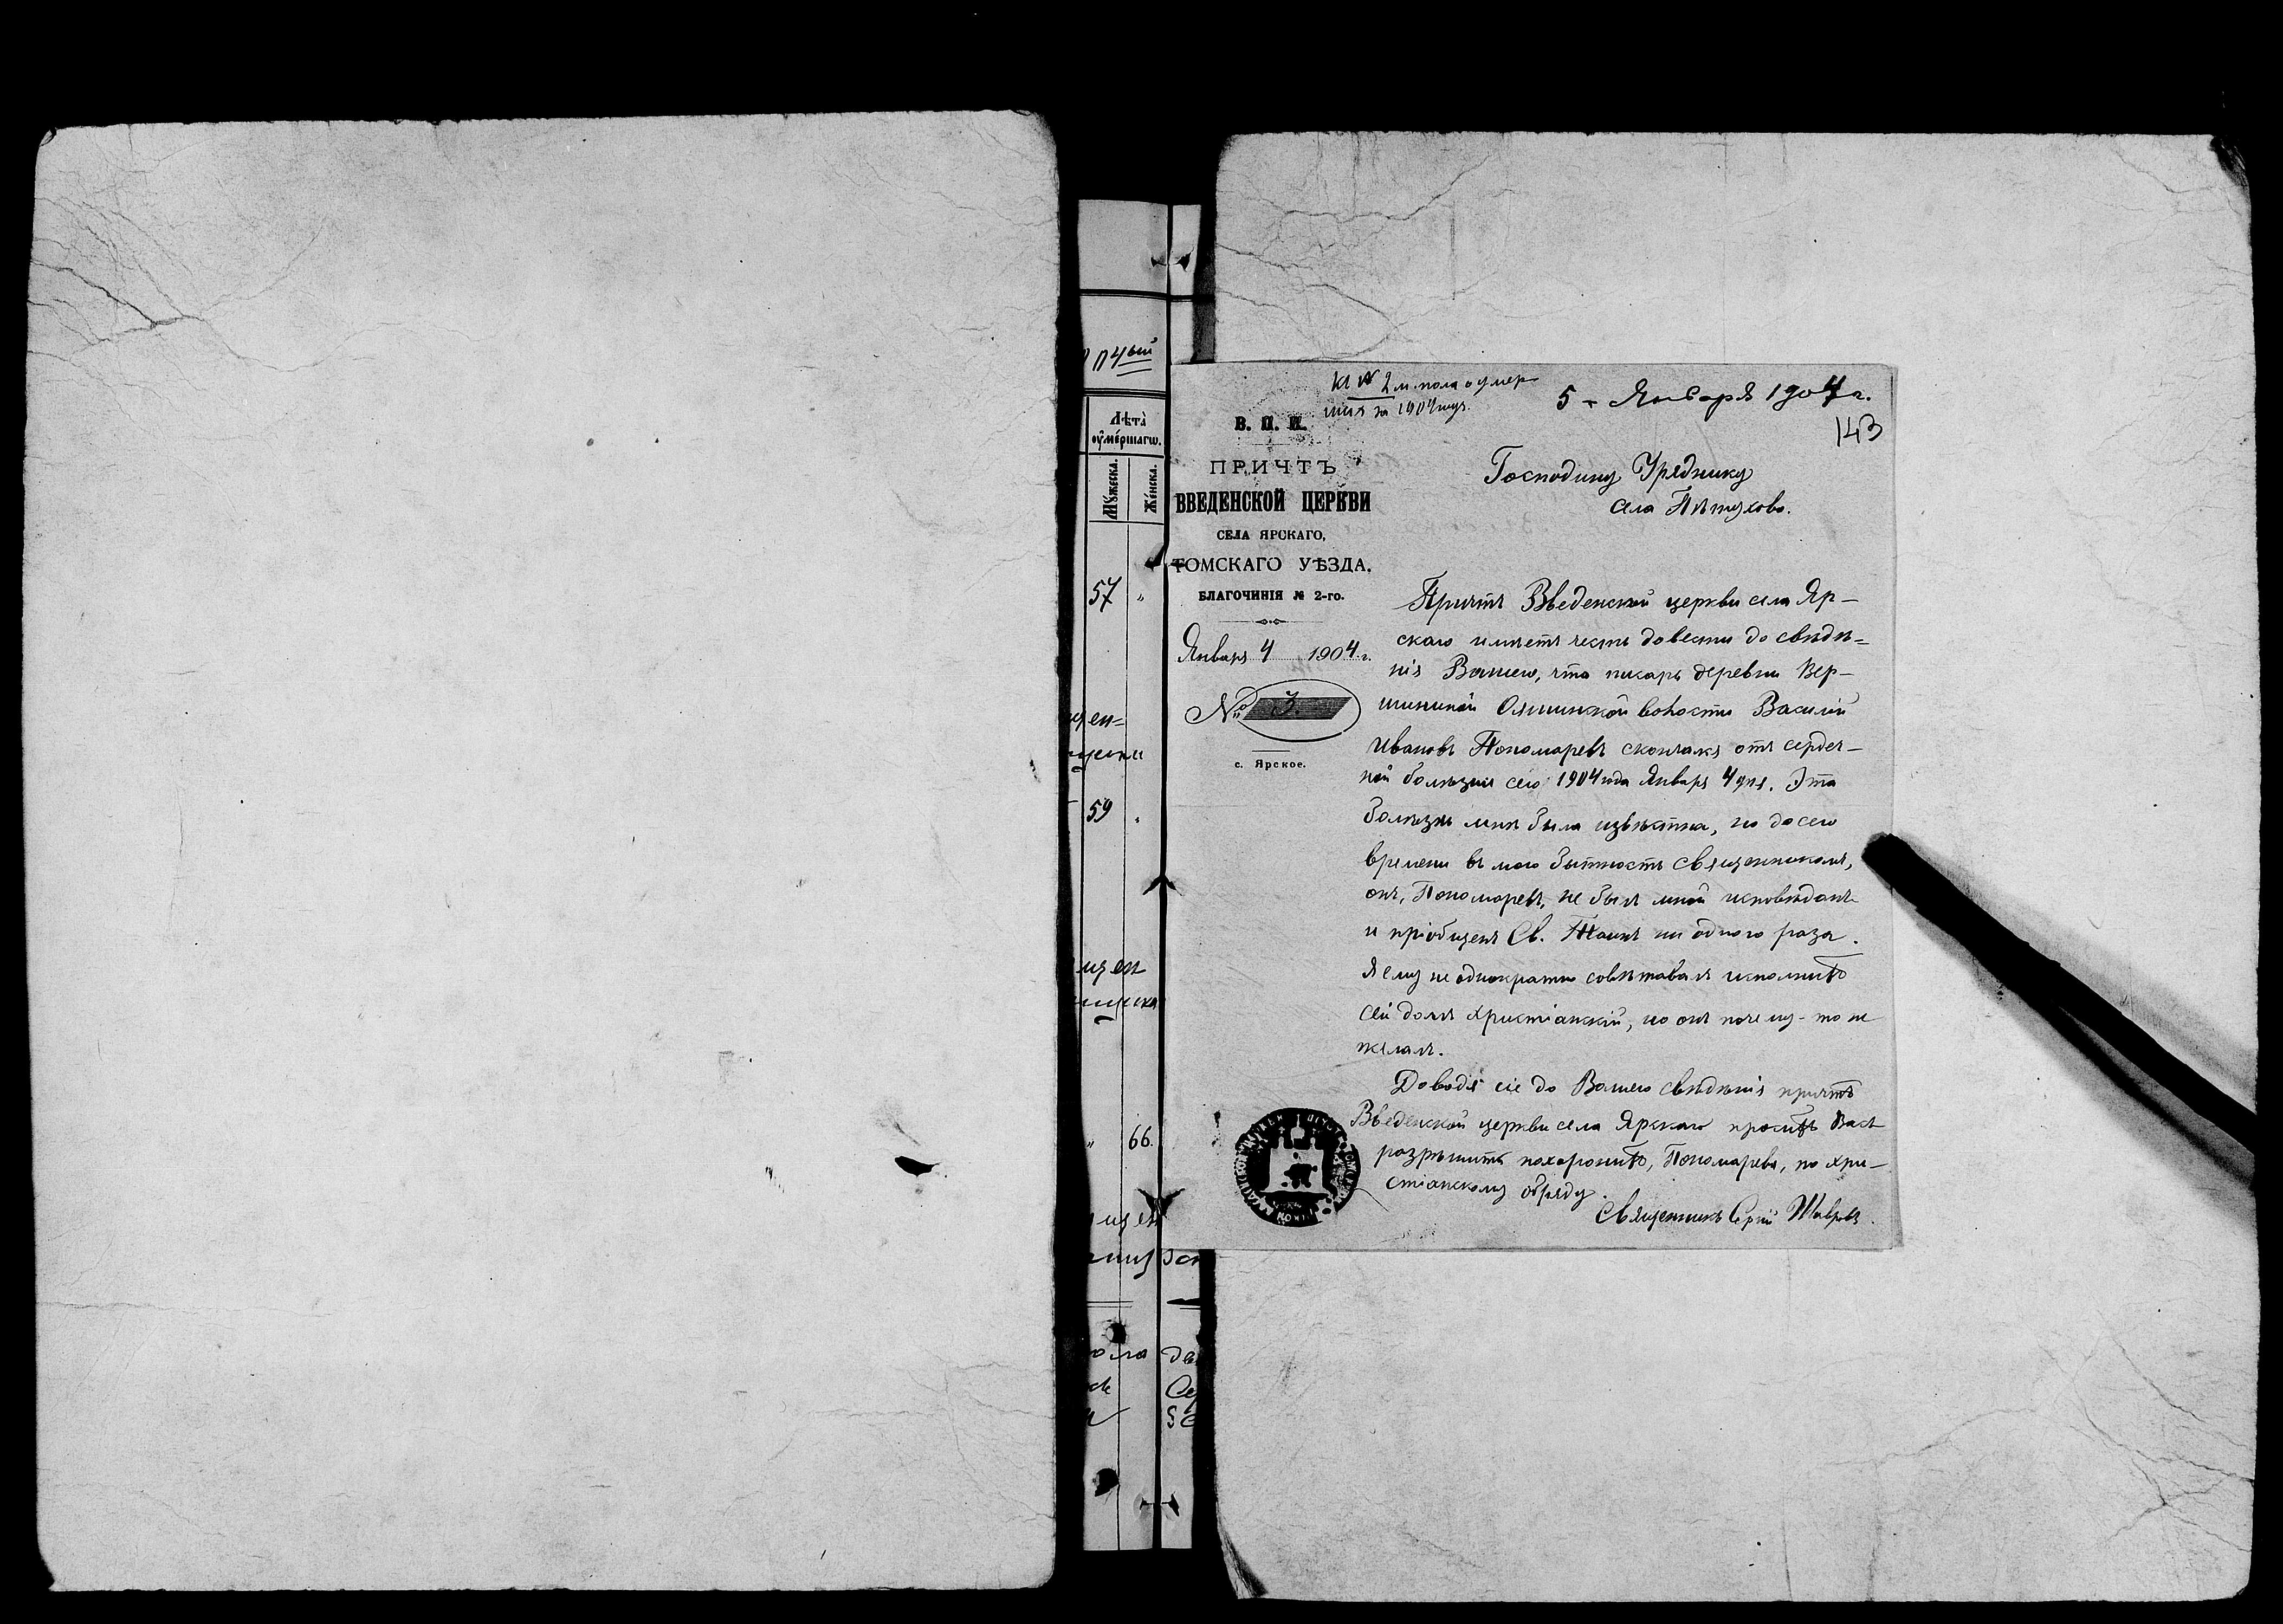 К № 2 м. пола о умер-
шихъ за 1904 годъ.
5 - Января 1904 г.
143
В. П. И.
ПРИЧТЪ
ВВЕДЕНСКОЙ ЦЕРКВИ
СЕЛА ЯРСКАГО,
ТОМСКАГО УѢЗДА,
БЛАГОЧИНІЯ № 2-го.
Января 4 1904 г.
№ 3.
с. Ярское.
Господину Уряднику
села Пѣтухово.
Причтъ Введенской церкви села Яр-
скаго имѣетъ честь довести до свѣдѣ=
нія Вашего, что писарь деревни Вер-
шининой Ояшинской волости Василій
Ивановъ Пономаревъ скончался отъ сердеч-
ной болѣзни сего 1904 года Января 4 дня. Эта
болѣзнь мнѣ была извѣстна, но до сего
времени въ мою бытность священникомъ,
онъ, Пономаревъ, не былъ мной исповѣданъ
и пріобщенъ Св. Таинъ ни одного раза.
Я ему неоднократно совѣтовалъ исполнить
сей долгъ христіанскій, но онъ почему-то не
желалъ.
Доводя сіе до Вашего свѣдѣнія причтъ
Введенской церкви села Ярскаго проситъ Васъ
разрѣшить похоронить, Пономарева, по хри-
стіанскому обряду.
Священникъ Сергій
Лѣта
оумершагѡ.
Мужеска.
Женска.
57 "
59 "
" 66.